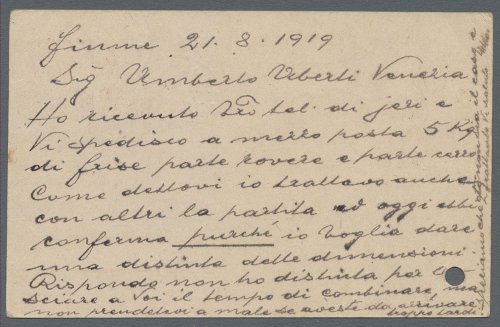 Fiume 21. 8. 1919
Sig Umberto Uberti Venezia
Ho ricevuto Vro tel. di jeri e
Vi spedisco a mezzo posta 5 Kg
di frise parte rovere e parte cerro
Come dettovi io trattavo anche
con altri la partita ed oggi ebbi
conferma purché io voglia dare
una distinta delle dimensioni
Rispondo non ho distinta per
sciare a Voi il tempo di combinare, ma
non prendetevi a male se aveste da arrivare
troppo tardi
il caso e